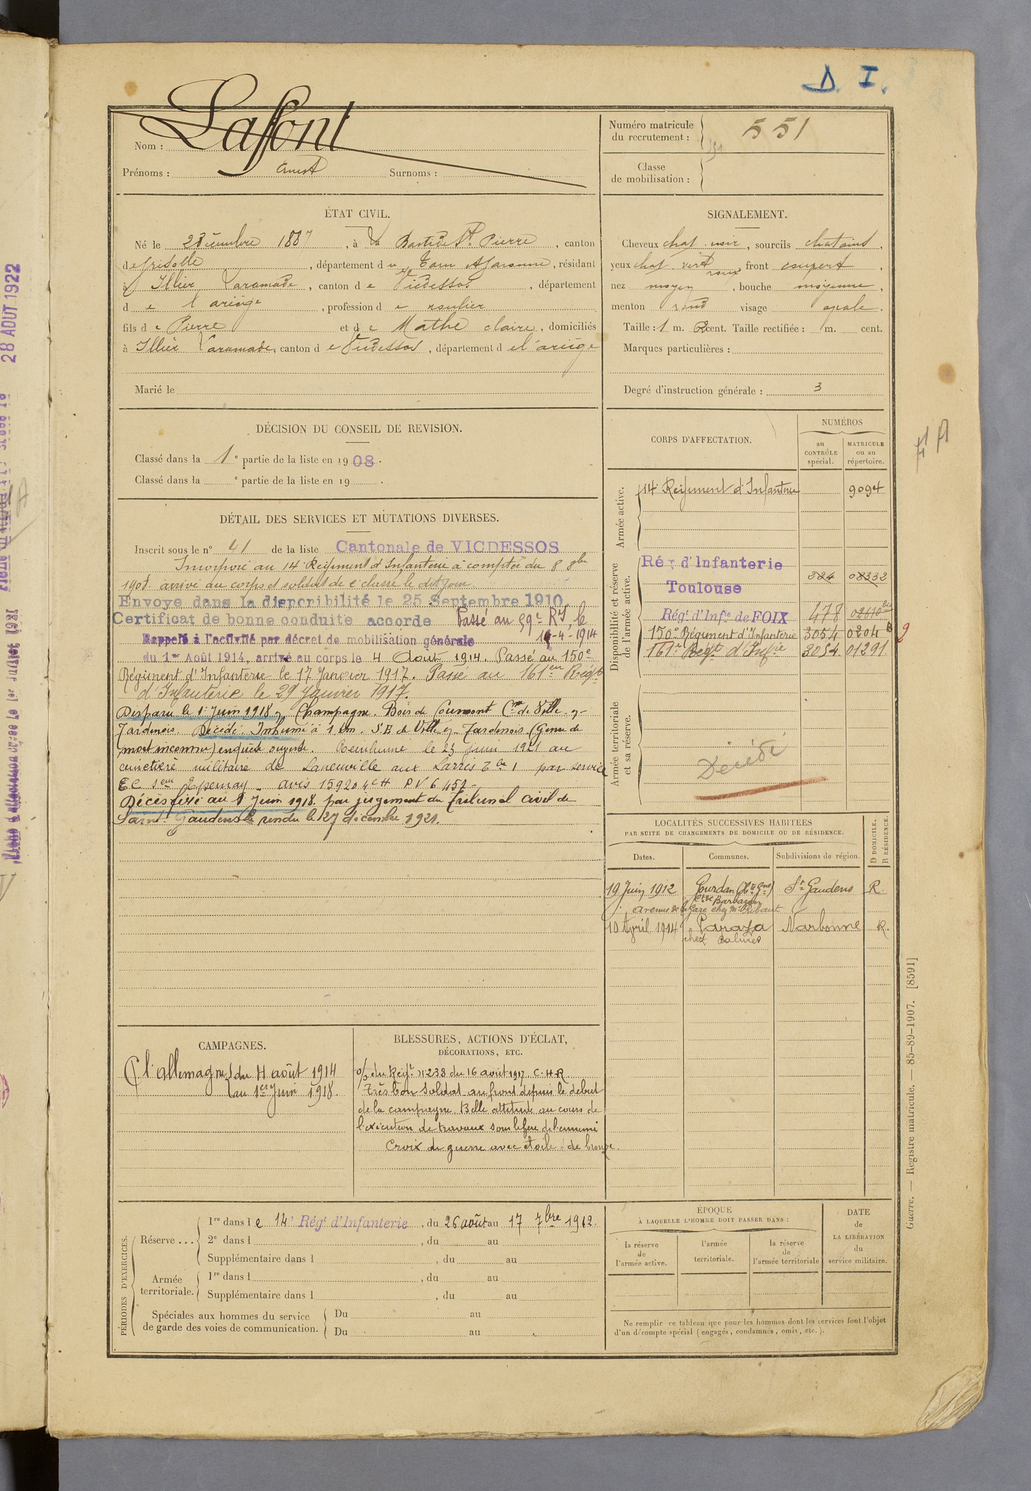 D. I.
Nom : Laffont
Prénoms : Surnoms :
Numéro matricule du recrutement : 551
Classe de mobilisation :
ÉTAT CIVIL.
Né le décembre 1887, à La Bastide St Pierre, canton
de Grisolle, département de Tarn et Garonne, résidant
à Illier Laramade, canton de Vicdessos, département
de l'ariège, profession de
fils de Pierre et de Mathe claire, domiciliés
à Illier Laramade, canton de Vicdessos, département de l'ariège
Marié le
SIGNALEMENT.
Cheveux chat. noir, sourcils chatains,
yeux chat. vert roux front couvert,
nez moyen, bouche moyenne,
menton rond visage ovale.
Taille : 1 m. cent. Taille rectifiée : m. cent.
Marques particulières :
Degré d'instruction générale : 3
DÉCISION DU CONSEIL DE REVISION.
Classé dans la 1e partie de la liste en 1908.
Classé dans la e partie de la liste en 19 .
DÉTAIL DES SERVICES ET MUTATIONS DIVERSES.
Inscrit sous le n° 41 de la liste Cantonale de VICDESSOS
Incorporé au 14e Régiment d'Infanterie à compter du 8 8bre
1908. arrivé au corps et soldat de 2e classe le dit jour.
Envoyé dans la disponibilité le 25 Septembre 1910
Certificat de bonne conduite accordé Passé au 59e RI, le
Rappelé à l'activité par décret de mobilisation générale 16-4-1914
du 1er Août 1914, arrivé au corps le 4 Août 1914. Passé au 150e
Régiment d'Infanterie le 17 Janvier 1917. Passé au 161e Régt
d'Infanterie le 29 Janvier 1917.
Disparu le 1er Juin 1918, Champagne. Bois de Courmont Cne de Ville-en-
Tardenois. Décédé. Inhumé à 1 km. S.E. de Ville-en-Tardenois (Genre de
mort inconnu) enquête ouverte. le 23 Juin 1921 au
cimetière militaire de Laneuville aux Larris Tbe 1 par service
EC Epernay - avis
Décès fixé au 1er Juin 1918. par jugement du Tribunal civil de
Saint-Gaudens rendu le 27 décembre 1921.
CORPS D'AFFECTATION.
NUMÉROS
au CONTRÔLE spécial.
MATRICULE ou au répertoire.
Armée active.
14e Régiment d'Infanterie 9094
Disponibilité et réserve de l'armée active.
Rég d'Infanterie
Toulouse
Rég. d'Infie de FOIX 478
150e Régiment d'Infanterie 3054 0204 B
161e Régt d'Infie 3054 01291
Armée territoriale et sa réserve.
Décédé
LOCALITÉS SUCCESSIVES HABITÉES
PAR SUITE DE CHANGEMENTS DE DOMICILE OU DE RÉSIDENCE.
Dates. Communes. Subdivisions de région. D DOMICILE. R RÉSIDENCE.
19 Juin 1912 Gourdan (Hte Gne) St Gaudens R.
10 Avril 1914 Paraza Narbonne R.
CAMPAGNES.
C l'allemagne du 4 août 1914
au 1er Juin 1918.
BLESSURES, ACTIONS D'ÉCLAT,
DÉCORATIONS, ETC.
o/ du Régt n° 233 du 16 avril 1917 C.H.R.
Très bon soldat au front depuis le début
de la campagne. Belle attitude au cours de
l'exécution de travaux sous le feu de l'ennemi
Croix de guerre avec étoile de bronze.
PÉRIODES D'EXERCICES.
Réserve ...
1re dans le 14e Rég. d'Infanterie, du 26 août au 17 7bre 1912.
2e dans l , du au
Supplémentaire dans l , du au
Armée territoriale.
1re dans l , du au
Supplémentaire dans l , du au
Spéciales aux hommes du service de garde des voies de communication.
Du au
Du au
ÉPOQUE
À LAQUELLE L'HOMME DOIT PASSER DANS :
la réserve de l'armée active.
l'armée territoriale.
la réserve de l'armée territoriale
DATE de LA LIBÉRATION du service militaire.
Ne remplir ce tableau que pour les hommes dont les services font l'objet
d'un décompte spécial (engagés, condamnés, omis, etc.).
Guerre. — Registre matricule. — 85-89-1907. [8591]
28 AOUT 1922